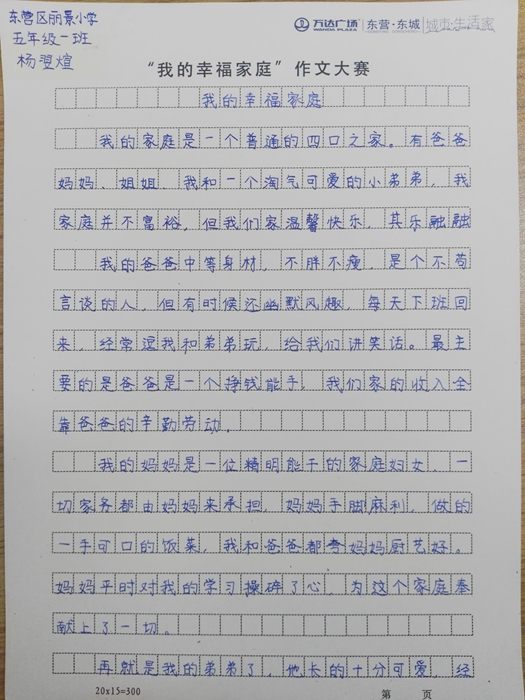 东营区丽景小学
五年级一班
杨翌煊
万达广场
WANDA PLAZA
东营·东城
城市·生活家
“我的幸福家庭”作文大赛
我的幸福家庭
我的家庭是一个普通的四口之家。有爸爸
妈妈、姐姐、我和一个淘气可爱的小弟弟，我
家庭并不富裕，但我们家温馨快乐，其乐融融
我的爸爸中等身材，不胖不瘦，是个不苟
言谈的人，但有时候还幽默风趣，每天下班回
来，经常逗我和弟弟玩，给我们讲笑话。最主
要的是爸爸是一个挣钱能手，我们家的收入全
靠爸爸的辛勤劳动。
我的妈妈是一位精明能干的家庭妇女，一
切家务都由妈妈来承担，妈妈手脚麻利，做的
一手可口的饭菜，我和爸爸都夸妈妈厨艺好。
妈妈平时对我的学习操碎了心，为这个家庭奉
献上了一切。
再就是我的弟弟了，他长的十分可爱，经
20x15=300
第 页